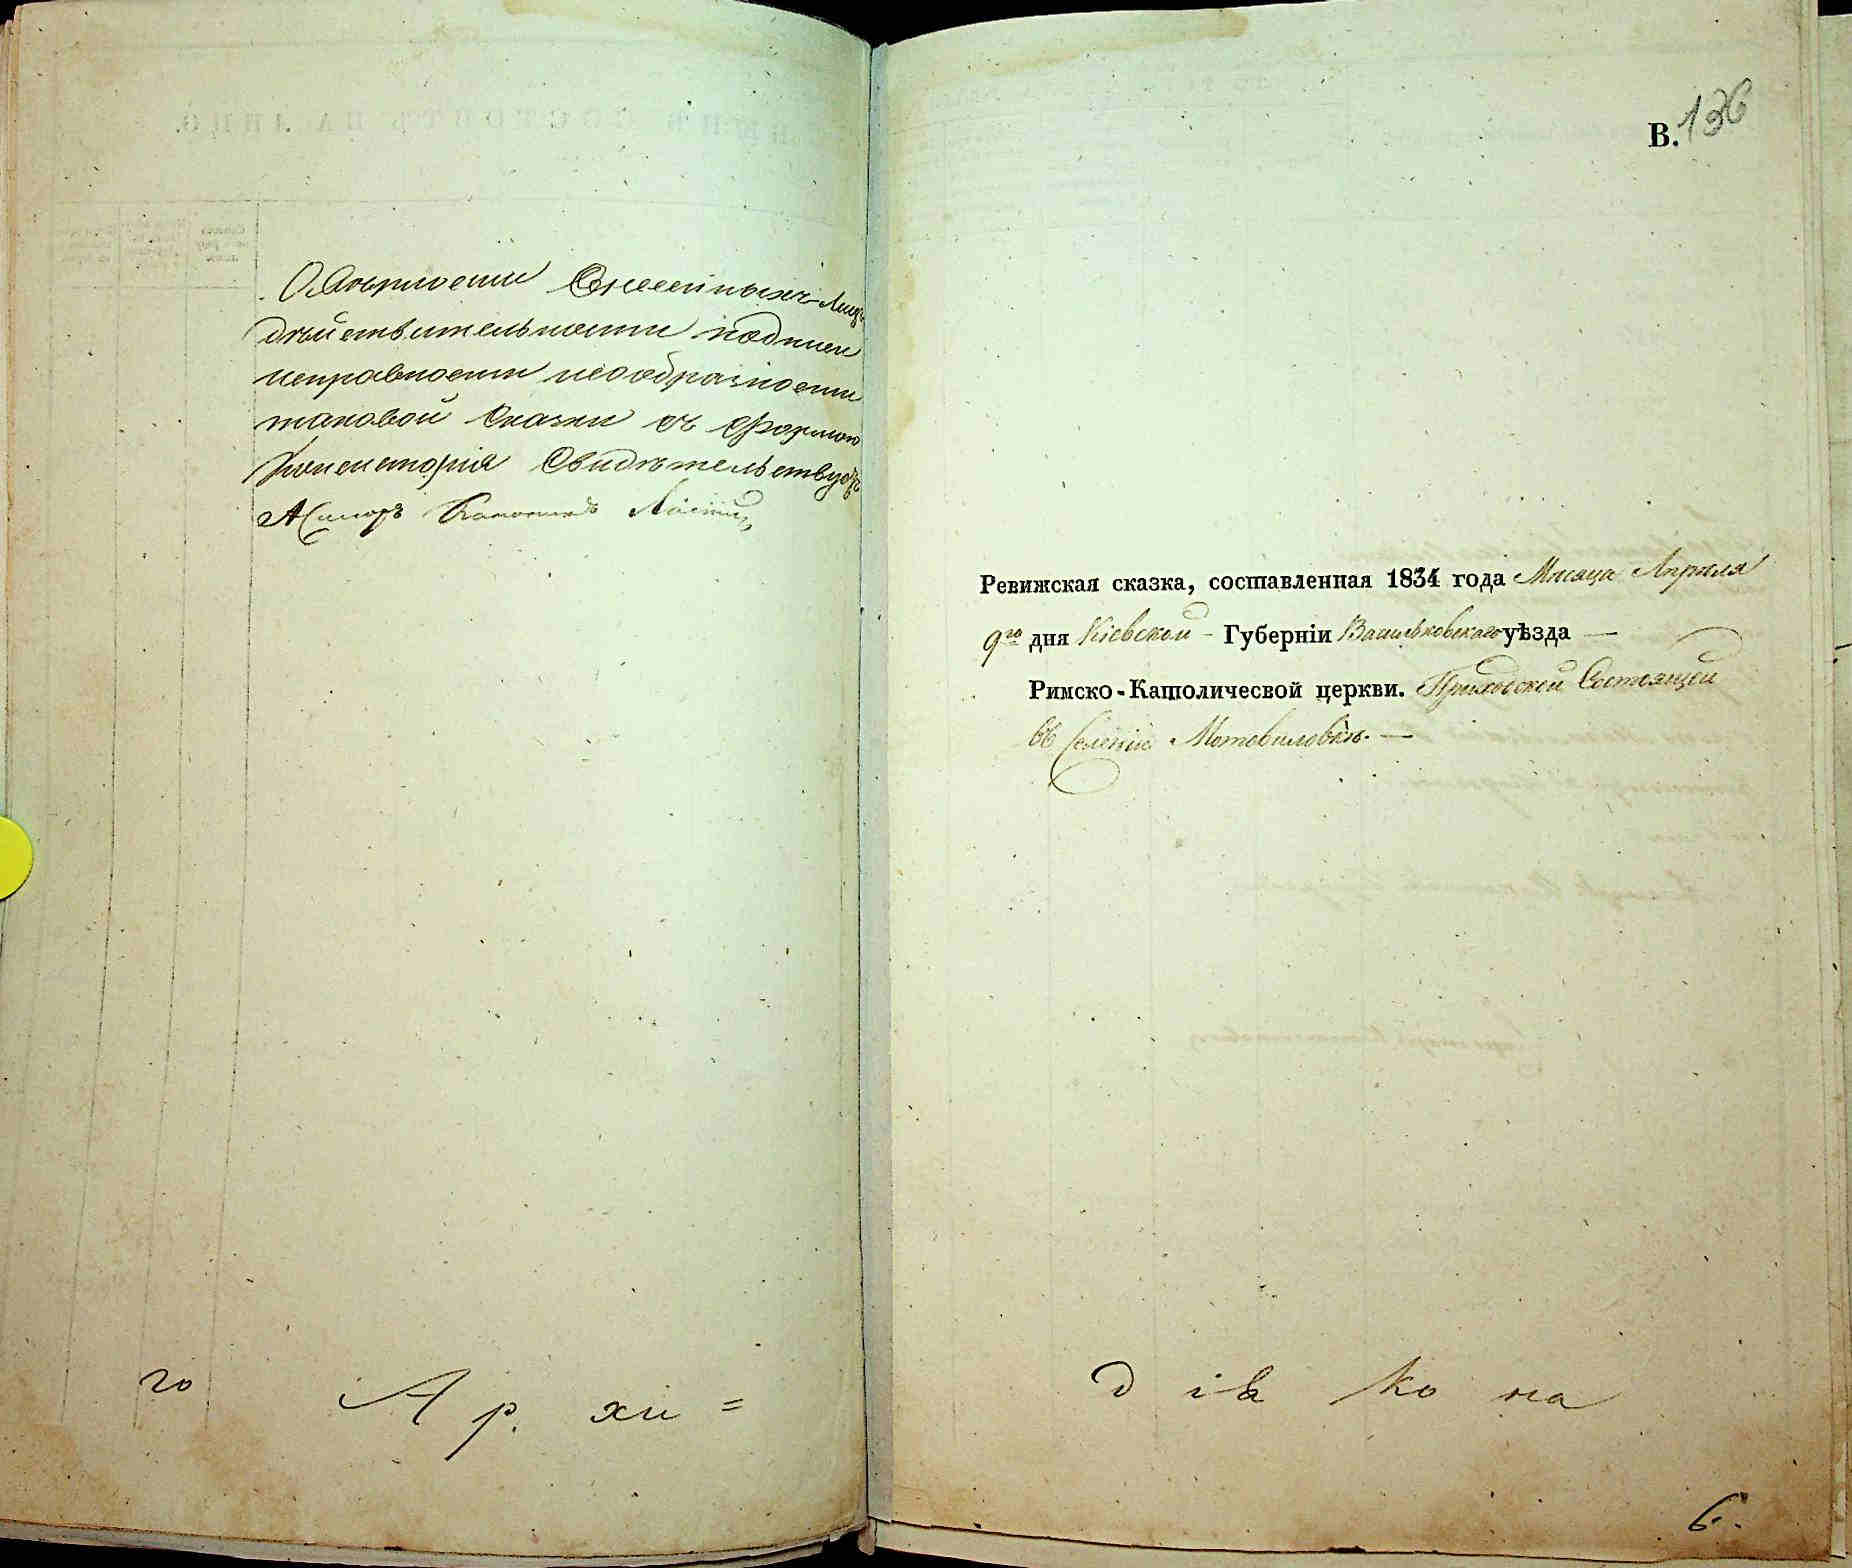 дѣйствительности подписи
исправности сообразности
таковой сказки съ формою
Консисторія Свидѣтельствуетъ
Асесоръ Каноникъ
го Архи=
В. 136
Ревижская сказка, составленная 1834 года Мѣсяца Апрѣля
9го дня Кіевской - Губерніи Васильковскаго уѣзда —
Римско-Католичесвой церкви. Приходской Состоящей
въ Селеніи Мотовиловкѣ. —
діа ко на
6.